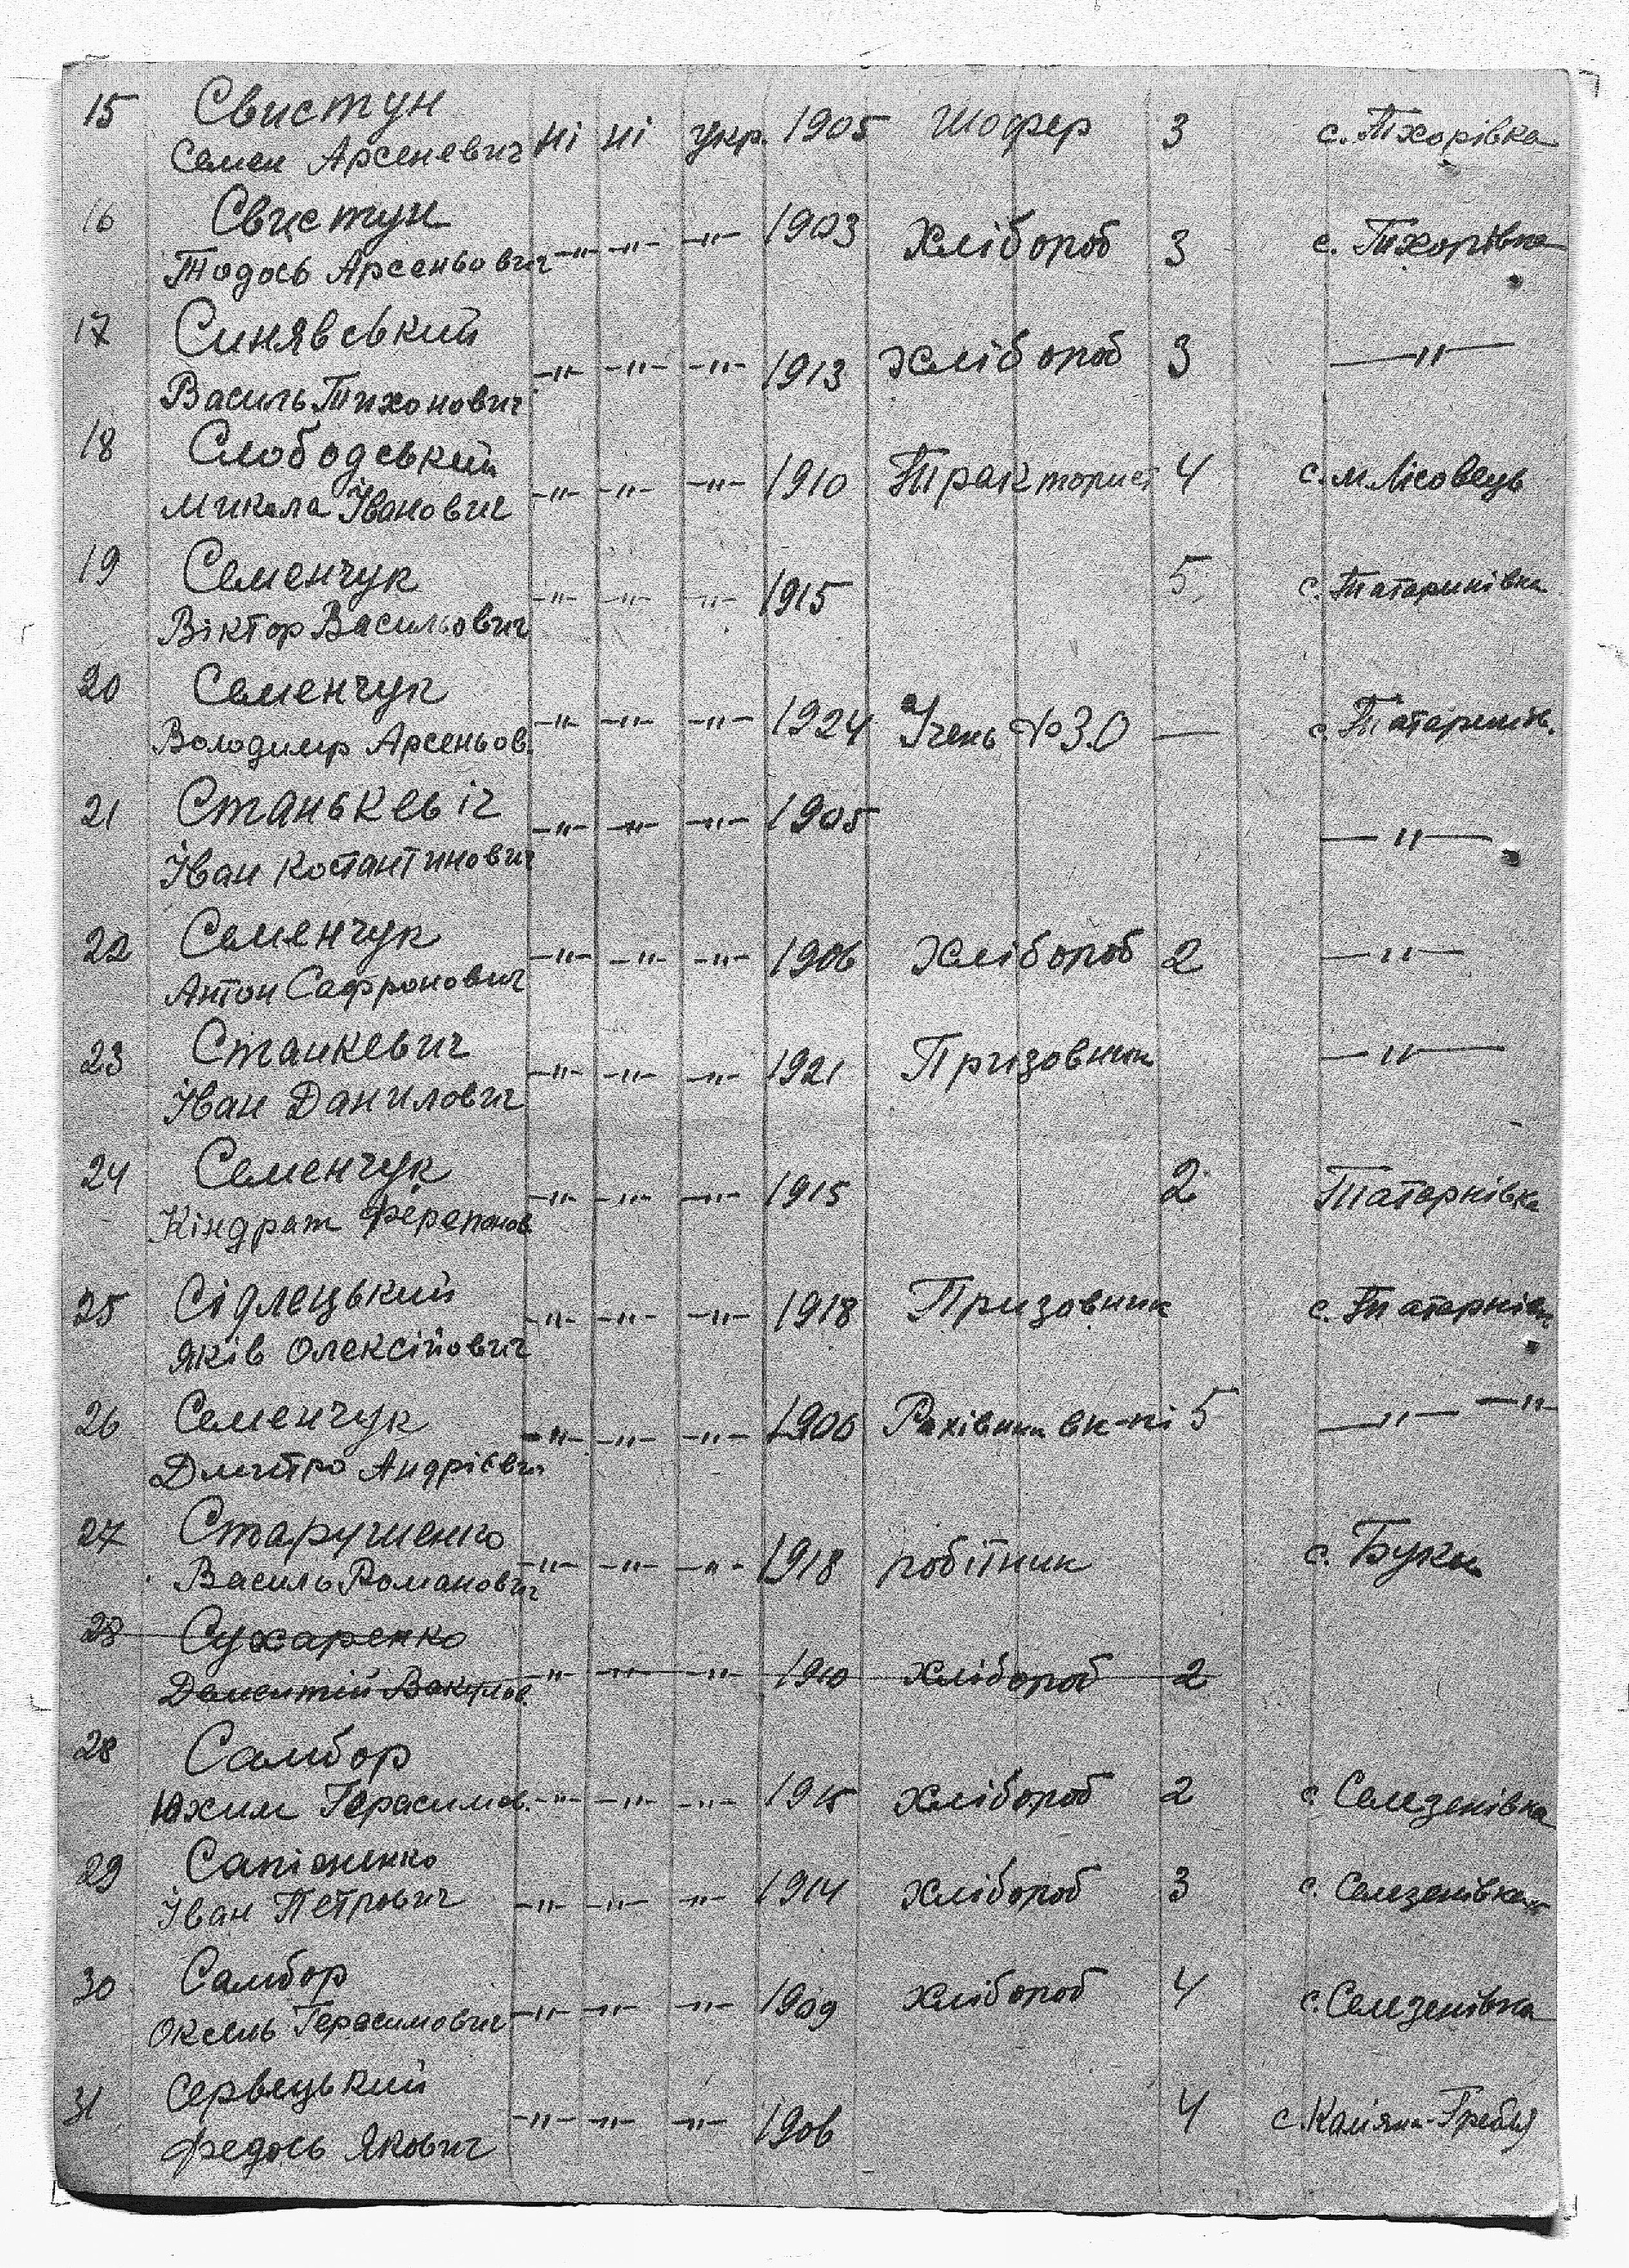 15 Свистун
Семен Арсеневич ні ні укр. 1905 Шофер 3 с. Тхорівка
16 Свистун
Тодось Арсеньович —"— —"— —"— 1903 Хлібороб 3 с. Тхорівка
17 Синявський
Василь Тихонович —"— —"— —"— 1913 Хлібороб 3 —"—
18 Слободський
Микола Іванович —"— —"— —"— 1910 Тракторист 4 с. М. Лісовець
19 Семенчук
Віктор Васильович —"— —"— —"— 1915 5 с. Татаринівка
20 Семенчук
Володимир Арсеньов. —"— —"— —"— 1924 Учень ФЗО — с.
21 Станькевіч
Іван Костантинович —"— —"— —"— 1905 —"—
22 Семенчук
Антон Сафронович —"— —"— —"— 1906 Хлібороб 2 —"—
23 Станкевич
Іван Данилович —"— —"— —"— 1921 Призовник —"—
24 Семенчук
Кіндрат Ферапонов —"— —"— —"— 1915 2 Татарнівка
25 Сідлецький
Яків Олексійович —"— —"— —"— 1918 Призовник с.
26 Семенчук
Дмитро Андрієвич —"— —"— —"— 1906 Рахівник 5 —"— —"—
27
Василь Романович —"— —"— —"— 1918 робітник с. Буки
28 Сухаренко
—"— —"— —"— 1910 Хлібороб 2
28 Самбор
Юхим Герасимов. —"— —"— —"— 1915 Хлібороб 2 с. Селезенівка
29
Іван Петрович —"— —"— —"— 1914 Хлібороб 3 с. Селезенівка
30 Самбор
Оксень Герасимович —"— —"— —"— 1909 Хлібороб 4 с. Селезенівка
31 Сервецький
Федось Якович —"— —"— —"— 1906 4 с.